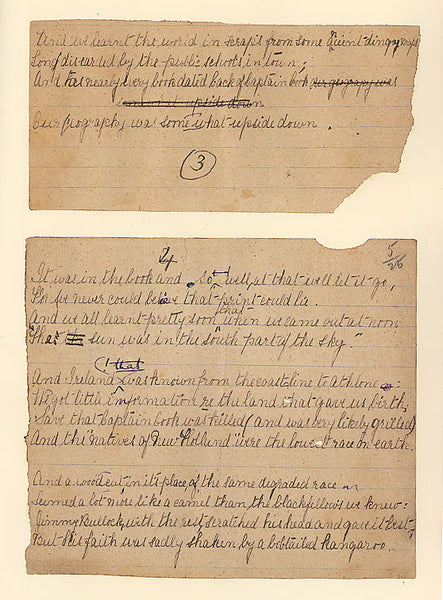 And we learnt the world in scraps from some ancient dingy maps
Long discarded by the public schools in town;
And as nearly every book dated back of Captain Cook our geography was
somewhat upside down
Our geography was somewhat upside down.
3
4
5/26
It was in the book and so well, at that we'll let it go,
For we never could believe that print could lie.
And we all learnt pretty soon that when we came out at noon
"That the sun was in the South part of the sky."
(that
And Ireland was known from the coast line to Athlone:
We got little information re the land that gave us birth,
Save that Captain Cook was killed (and was very likely grilled)
And "the natives of New Holland were the lowest race on earth.
And a wood cut in its place of the same degraded race
Seemed a lot more like a camel than the blackfellows we knew:
Jimmy Bullock, with the rest scratched his head and gave it best,
But his faith was sadly shaken by a bobtailed kangaroo.